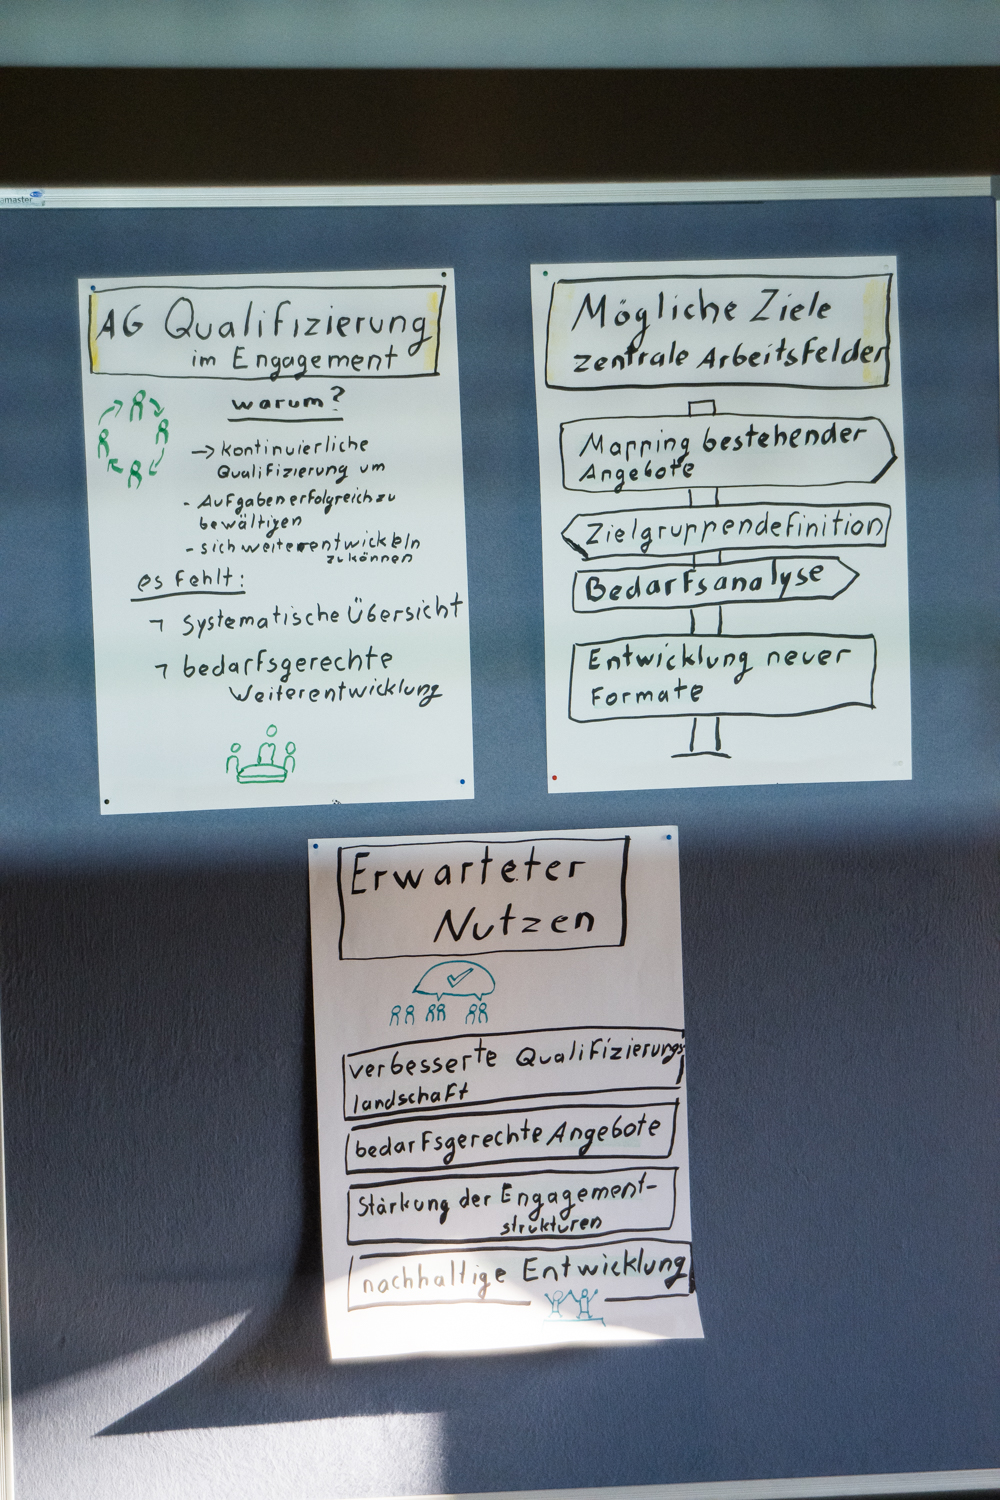 amaster
AG Qualifizierung
im Engagement
warum?
→ kontinuierliche
Qualifizierung um
- Aufgaben erfolgreich zu
bewältigen
- sich weiterentwickeln
zu können
es fehlt:
¬ Systematische Übersicht
¬ bedarfsgerechte
Weiterentwicklung
Mögliche Ziele
zentrale Arbeitsfelder
Mapping bestehender
Angebote
Zielgruppendefinition
Bedarfsanalyse
Entwicklung neuer
Formate
Erwarteter
Nutzen
verbesserte Qualifizierungs
landschaft
bedarfsgerechte Angebote
Stärkung der Engagement-
strukturen
nachhaltige Entwicklung